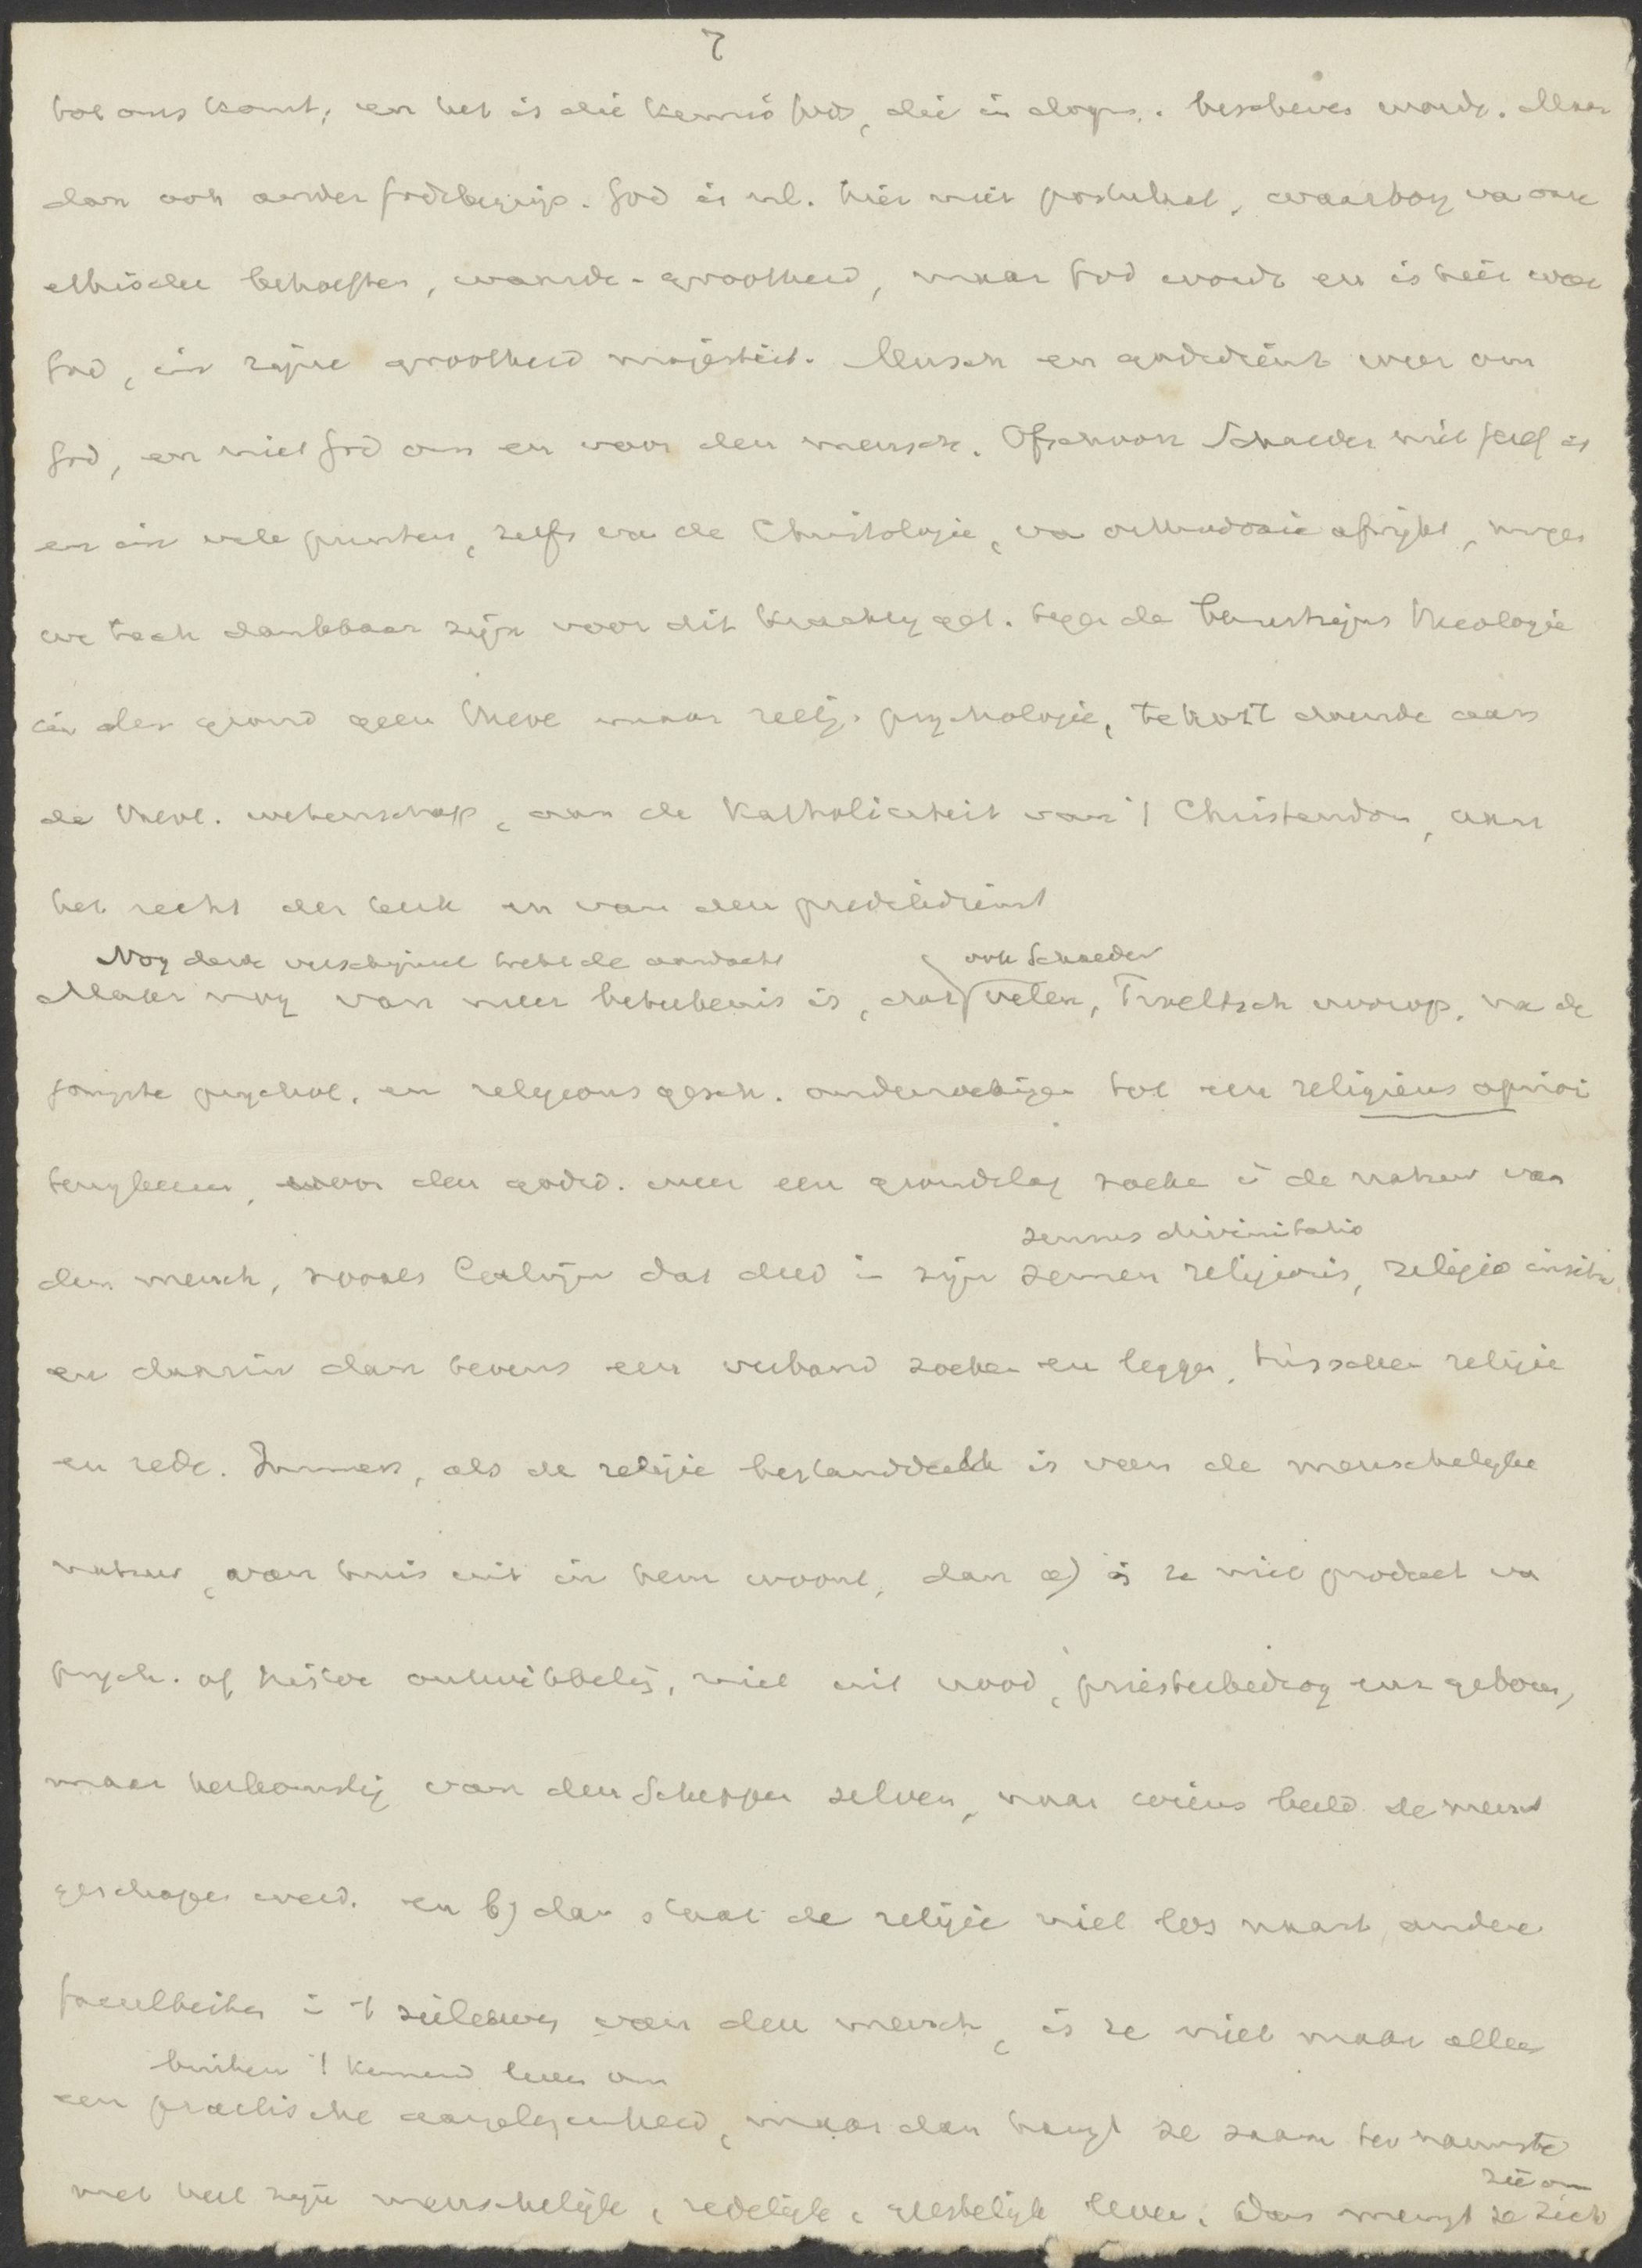 7
tot ons komt, en het is die kennis Gods, die in dogm. beschreven wordt. Maar
dan ook ander Godsbegrip. God is nl. hier niet postulaat, waarborg va onze
ethische behoeften, waarde-grootheid, maar God wordt en is hier weer
God, in zijne grootheid majesteit. Mensch en godsdienst weer om
God, en niet God om en voor den mensch. Ofschoon Schaeder niet is
en in vele punten, zelfs va de Christologie, va orthodoxie afwijkt, mogen
we toch dankbaar zijn voor dit krachtig get. tegen de Theologie
in den grond geen theol maar relig. psychologie, te kort doende aan
de theol. wetenschap, aan de Katholiciteit van 't Christendom, aan
het recht der kerk en van den predikdienst
Nog derde verschijnsel trekt de aandacht ook Schaeder
Maar nog van meer beteekenis is, dat velen, Troeltsch voorop, na de
jongste psychol. en religions gesch. onderzoekingen tot een religieus apriori
terugkeeren, voor den godsd. weer een grondslag zoeken i de natuur van
sensus divinitatis
den mensch, zooals Calvijn dat deed in zijn semen religionis, religio insita,
en daarin dan tevens een verband zoeken en leggen, tusschen religie
en rede. Immers, als de religie bestanddeel is van de menschelijke
natuur, van huis uit in hem woont, dan a) is ze niet product va
psych. of histor ontwikkeling, niet uit nood, priesterbedrog enz geboren,
maar herkomstig van den Schepper zelven, naar wiens beeld de mensch
geschapen werd. en b) dan staat de religie niet los naast andere
faculteiten i 't zieleleven van den mensch, is ze niet maar alleen
buiten 't kennend leven om
een practische aangelegenheid, maar dan hangt ze saam ten nauwste
met heel zijn menschelijk, redelijk, geestelijk leven. Dan mengt ze zich